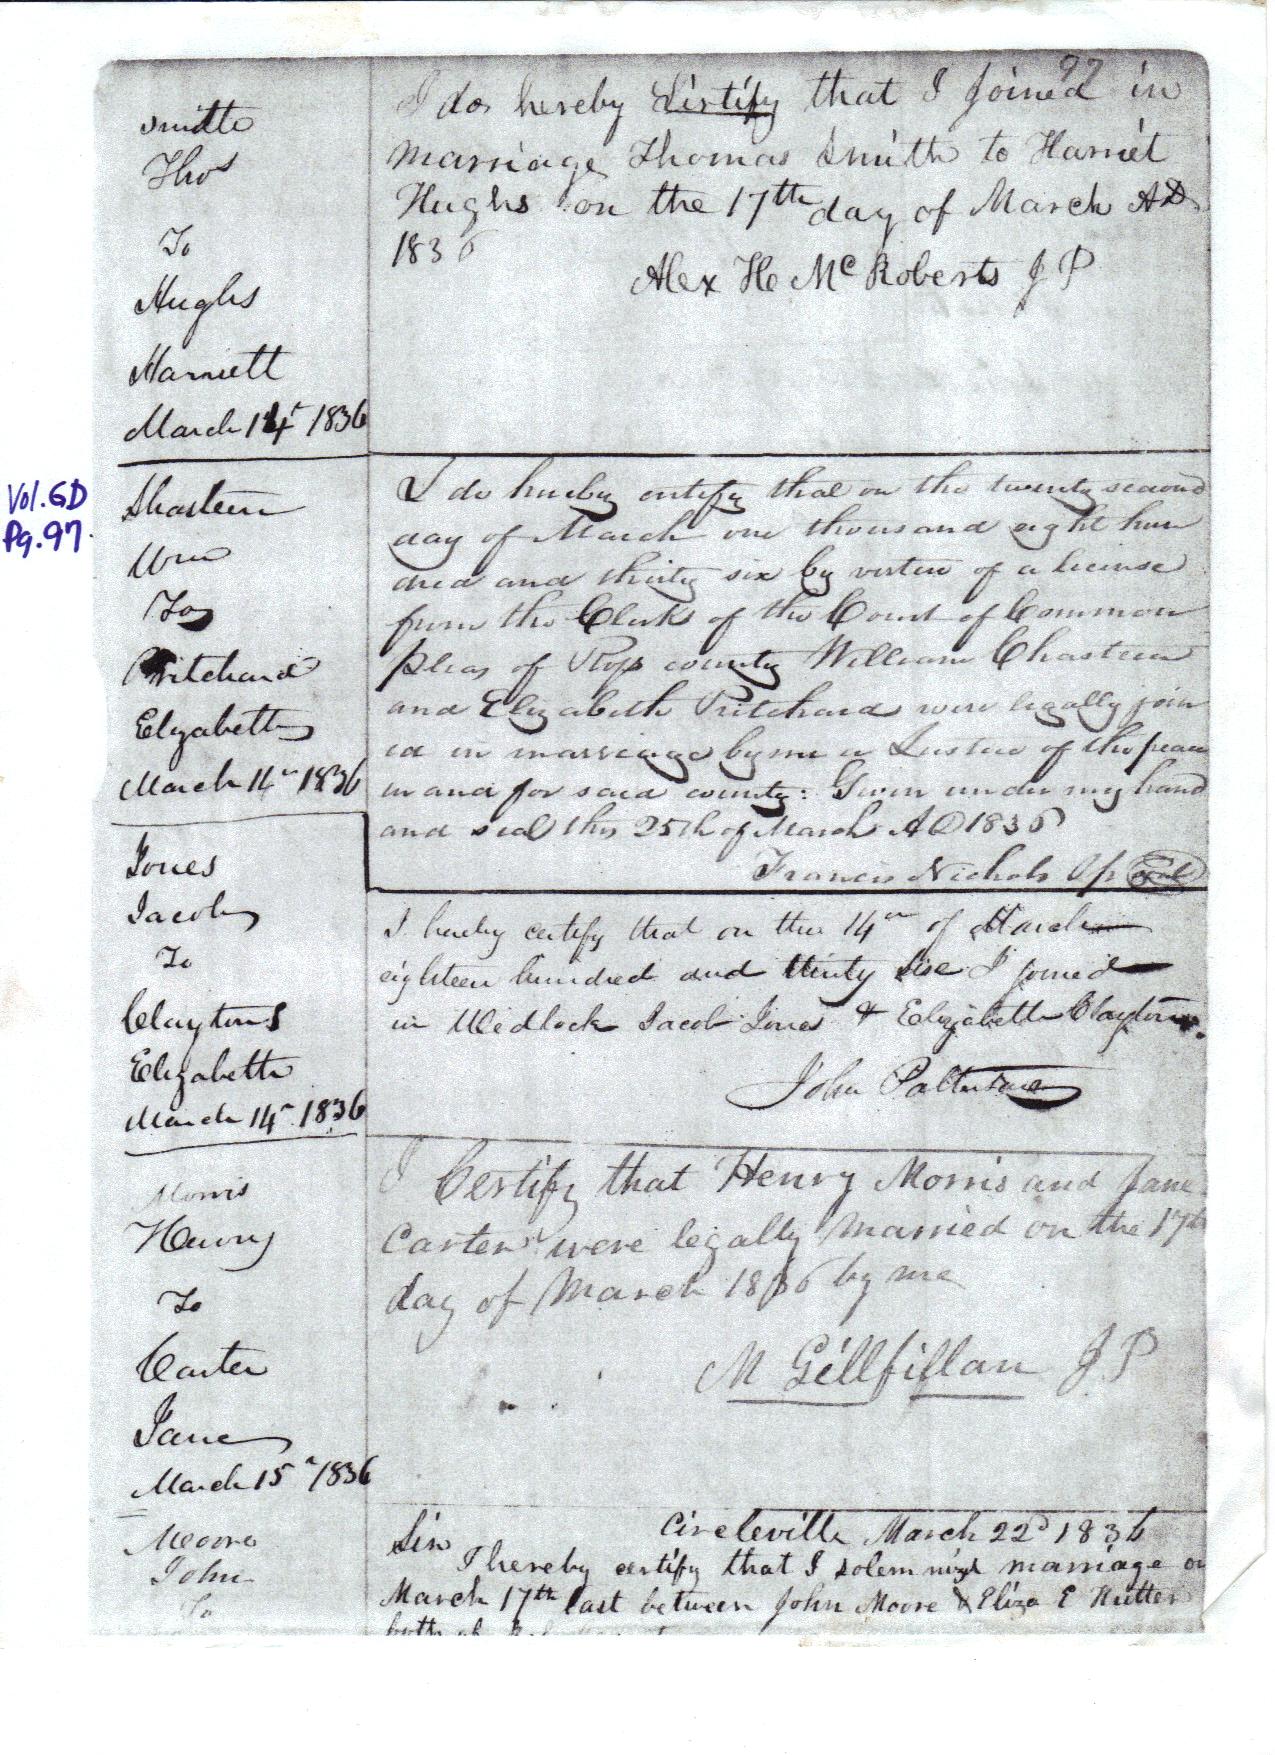 97
Smith
Thos
To
Hughs
Harriett
March 14th 1836
I do hereby Certify that I joined in
marriage Thomas Smith to Harriet
Hughs on the 17th day of March AD
1836
Alex H McRoberts J P
Vol. GD
Pg. 97
Shasteen
Wm
To
Pritchard
Elizabeth
March 14th 1836
I do hereby certify that on the twenty second
day of March one thousand eight hun
dred and thirty six by virtue of a license
from the Clerk of the Court of Common
pleas of Ross county William Chasteen
and Elizabeth Pritchard were legally join
ed in marriage by me a Justice of the peace
in and for said county: Given under my hand
and seal this 25th of March AD 1836
Francis Nichols Jp Seal
Jones
Jacob
To
Claytons
Elizabeth
March 14th 1836
I hereby certify that on the 14th of March
eighteen hundred and thirty six I joined
in Wedlock Jacob Jones & Elizabeth Clayton
John Patterson
Morris
Henry
To
Carter
Jane
March 15th 1836
I Certify that Henry Morris and Jane
Carter were legally married on the 17th
day of March 1836 by me
M Gillfillan J P
Moore
John
To
Circleville March 22d 1836
Sir
I hereby certify that I solemnizd marriage on
March 17th last between John Moore & Eliza E Nutter
both of